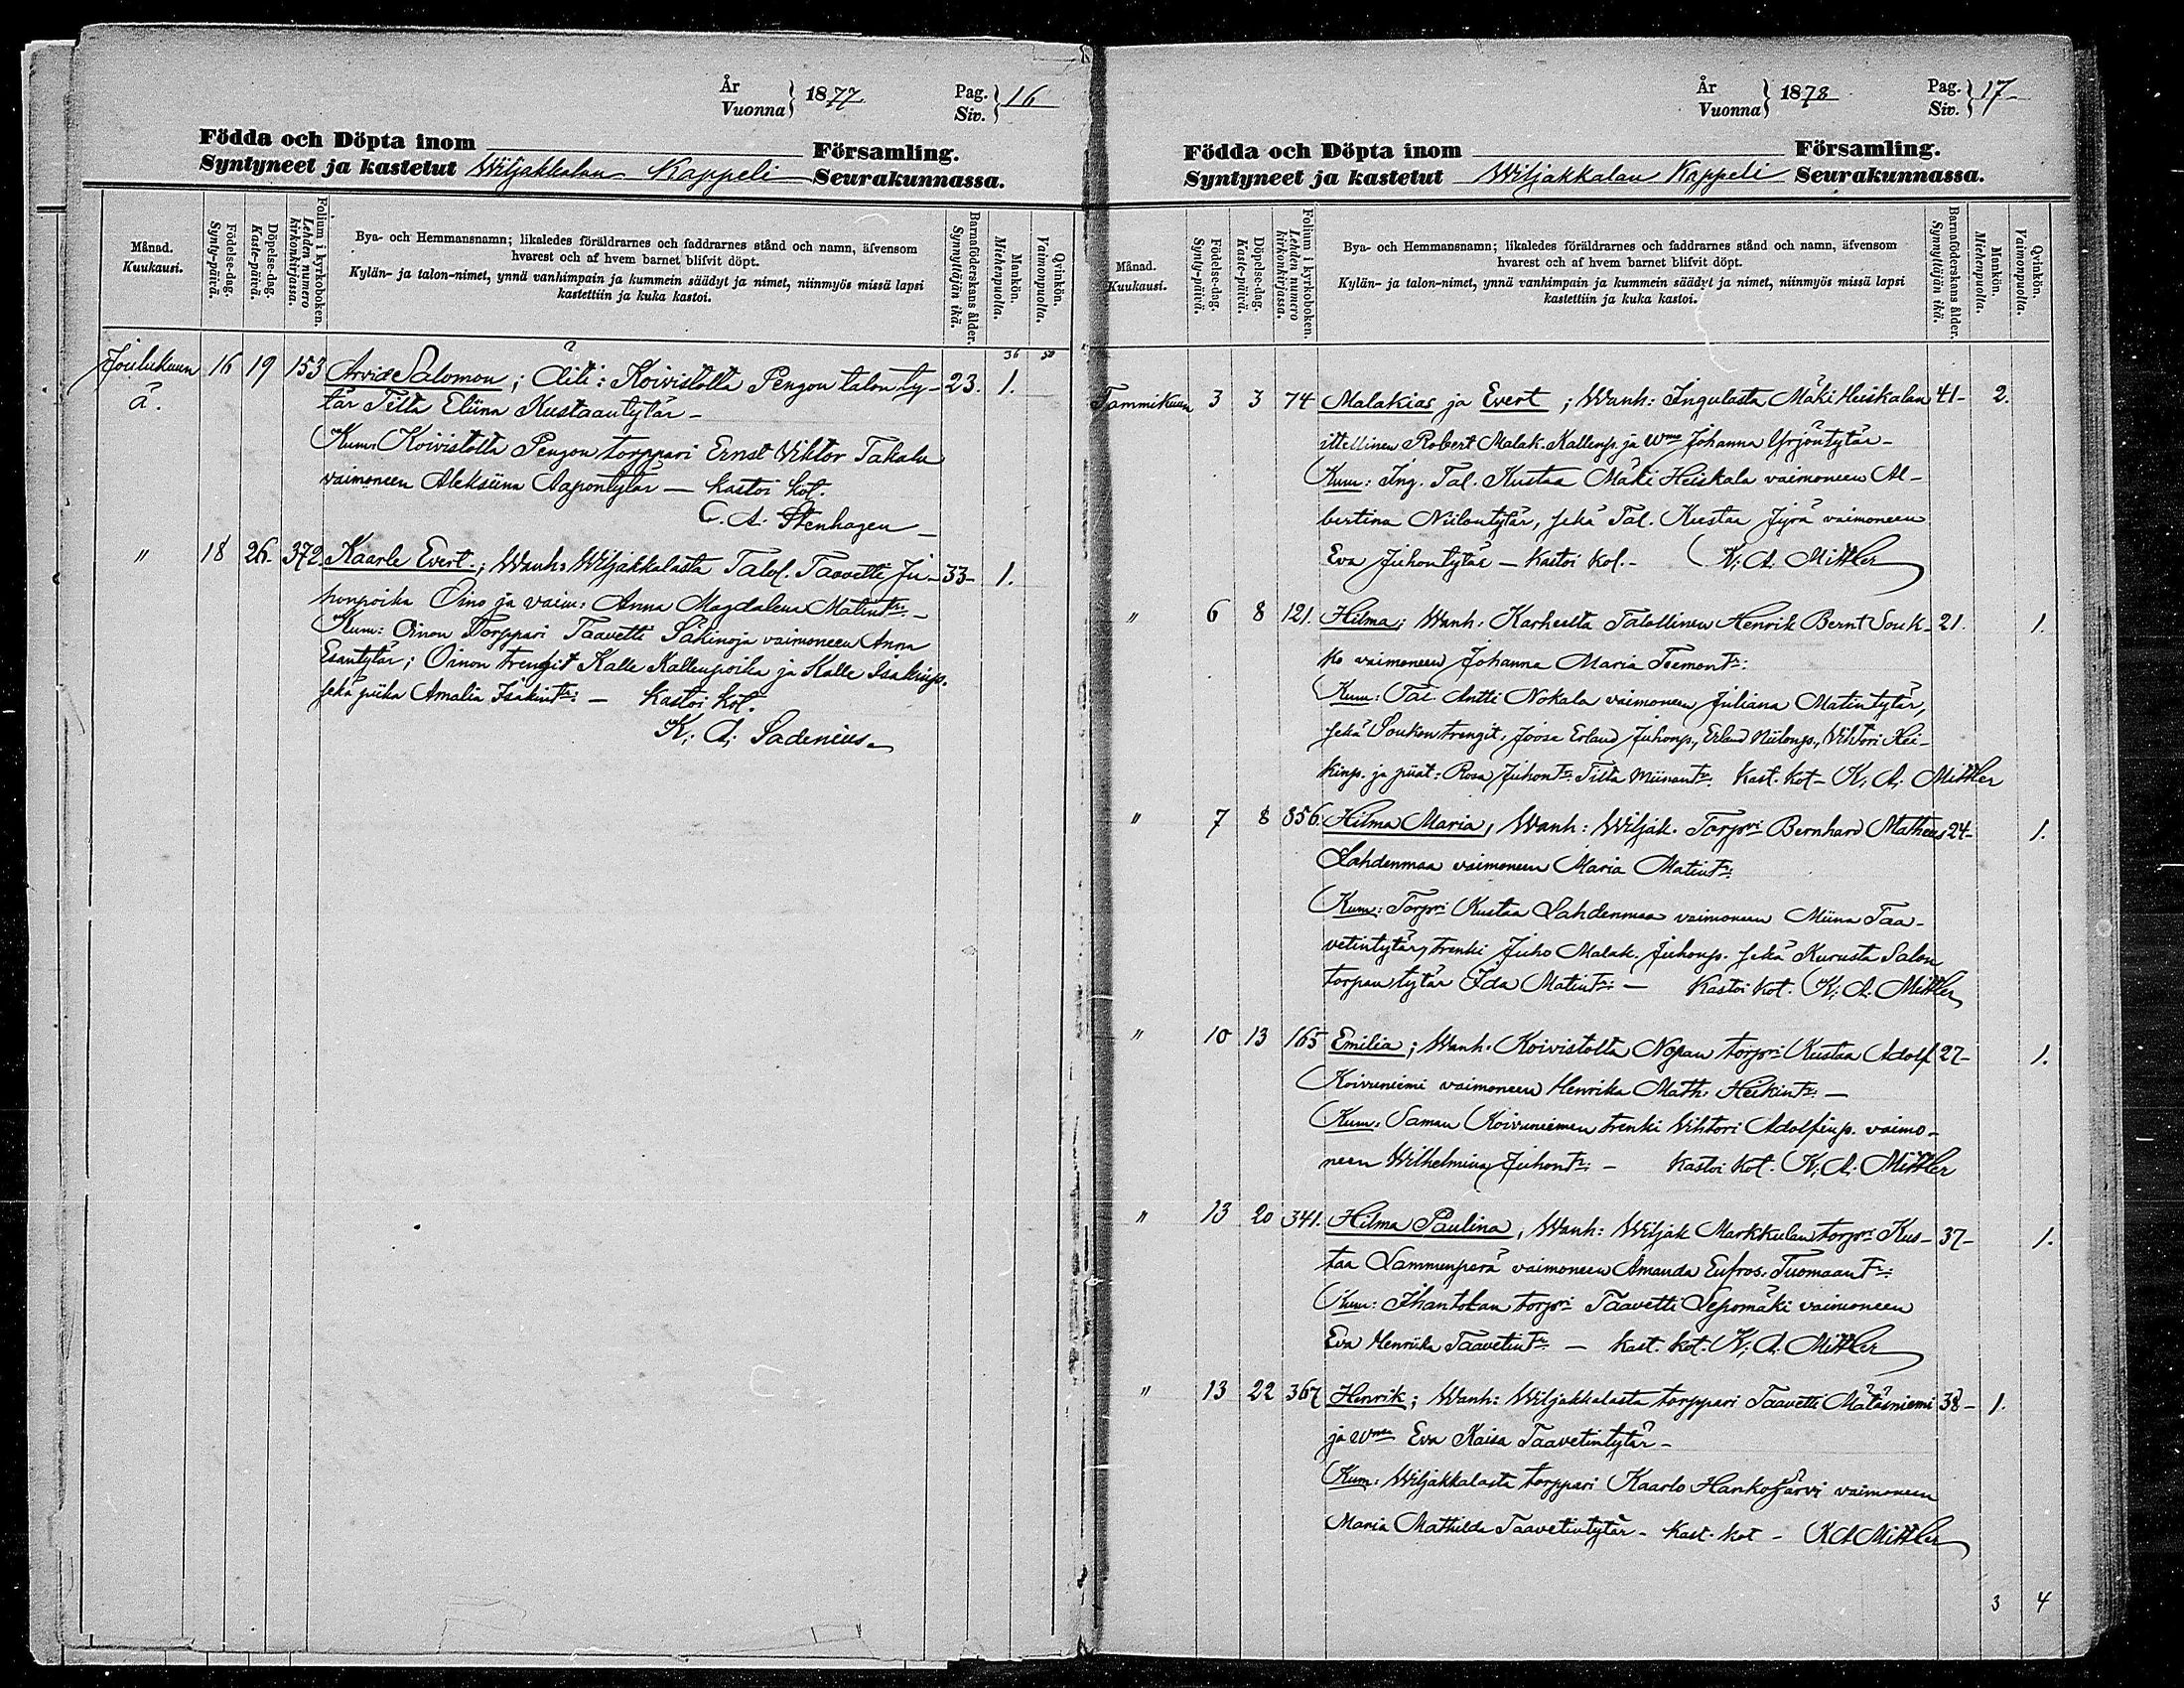 År
Vuonna } 1877.
Pag.
Siv. } 16
Födda och Döpta inom Församling.
Syntyneet ja kastetut Wiljakkalan Kappeli Seurakunnassa.
Månad.
Kuukausi.
Födelse-dag.
Synty-päivä.
Döpelse-dag.
Kaste-päivä.
Folium i kyrkoboken.
Lehden numero
kirkonkirjassa.
Bya- och Hemmansnamn; likaledes föräldrarnes och faddrarnes stånd och namn, äfvensom
hvarest och af hvem barnet blifvit döpt.
Kylän- ja talon-nimet, ynnä vanhimpain ja kummein säädyt ja nimet, niinmyös missä lapsi
kastettiin ja kuka kastoi.
Barnaföderskans ålder.
Synnyttäjän ikä.
Mankön.
Miehenpuolta.
Qvinkön.
Vaimonpuolta.
36
Joulukuun 16 19 153 Arvid Salomon; Äiti: Koivistolta Pengon talon ty- 23. 1.
ä. tär Tilta Eliina Kustaantytär -
Kum: Koivistolta Pengon torppari Ernst Viktor Takala
vaimoneen Aleksiina Aapontytär — kastoi kot.
C. A. Stenhagen
" 18 26 372. Kaarle Evert.; Wanh: Wiljakkalasta Talol. Taavetti Ju- 33- 1.
honpoika Oino ja vaim: Anna Magdalena Matintr: -
Kum: Oinon Torppari Taavetti Säkinoja vaimoneen Anna
Esantytär; Oinon trengit Kalle Kallenpoika ja Kalle Isakinp.
sekä piika Amalia Isakintr: — kastoi kot.
K. A. Sadenius
År
Vuonna } 1878
Pag.
Siv. } 17
Födda och Döpta inom Församling.
Syntyneet ja kastetut Wiljakkalan Kappeli Seurakunnassa.
Månad.
Kuukausi.
Födelse-dag.
Synty-päivä.
Döpelse-dag.
Kaste-päivä.
Folium i kyrkoboken.
Lehden numero
kirkonkirjassa.
Bya- och Hemmansnamn; likaledes föräldrarnes och faddrarnes stånd och namn, äfvensom
hvarest och af hvem barnet blifvit döpt.
Kylän- ja talon-nimet, ynnä vanhimpain ja kummein säädyt ja nimet, niinmyös missä lapsi
kastettiin ja kuka kastoi.
Barnaföderskans ålder.
Synnyttäjän ikä.
Mankön.
Miehenpuolta.
Qvinkön.
Vaimonpuolta.
Tammikuun 3 3 74 Malakias ja Evert; Wanh: Ingulasta Mäki Heiskalan 41- 2.
ittellinen Robert Malak. Kallenp. ja wmo Johanna Yrjöntytär -
Kum: Ing. Tal. Kustaa Mäki Heiskala vaimoneen Al-
bertina Niilontytär, sekä Tal. Kustaa Jyrä vaimoneen
Eva Juhontytär — kastoi kot. - K. A. Mittler
" 6 8 121. Hilma; Wanh: Karheelta Talollinen Henrik Bernt Souk- 21. 1.
ko vaimoneen Johanna Maria Teemontr:
Kum: Tal. Antti Nokala vaimoneen Juliana Matintytär,
sekä Soukon trengit: Joose Erland Juhonp., Erland Niilonp., Vihtori Hei-
kinp. ja piiat: Rosa Juhontr: Tilta Miinantr: Kast. kot - K. A. Mittler
" 7 8 356. Hilma Maria, Wanh: Wiljak. Torpri Bernhard Matheus 24- 1.
Lahdenmaa vaimoneen Maria Matintr:
Kum: Torpri Kustaa Lahdenmaa vaimoneen Miina Taa-
vetintytär, trenki Juho Malak. Juhonp. sekä Kurusta Salon
torpan tytär Ida Matintr: — kastoi kot. K. A. Mittler
" 10 13 165 Emilia; Wanh. Koivistolta Nopan torpri Kustaa Adolf 27- 1.
Koivuniemi vaimoneen Henrika Math. Heikintr: —
Kum: Saman Koivuniemen trenki Vihtori Adolfinp. vaimo-
neen Wilhelmina Juhontr: - kastoi kot. K. A. Mittler
" 13 20 341. Hilma Paulina, Wanh: Wiljak Markkulan torpri Kus- 37- 1.
taa Lammenperä vaimoneen Amanda Eufros. Tuomaantr:
Kum: Ihantolan torpri Taavetti Lepomäki vaimoneen
Eva Henrika Taavetintr: — kast. kot. K. A. Mittler
" 13 22 367 Henrik; Wanh: Wiljakkalasta torppari Taavetti Mätäsniemi 38- 1.
ja wmo Eva Kaisa Taavetintytär -
Kum: Wiljakkalasta torppari Kaarlo Hankojärvi vaimoneen
Maria Mathilda Taavetintytär - kast. kot - K A Mittler
3 4